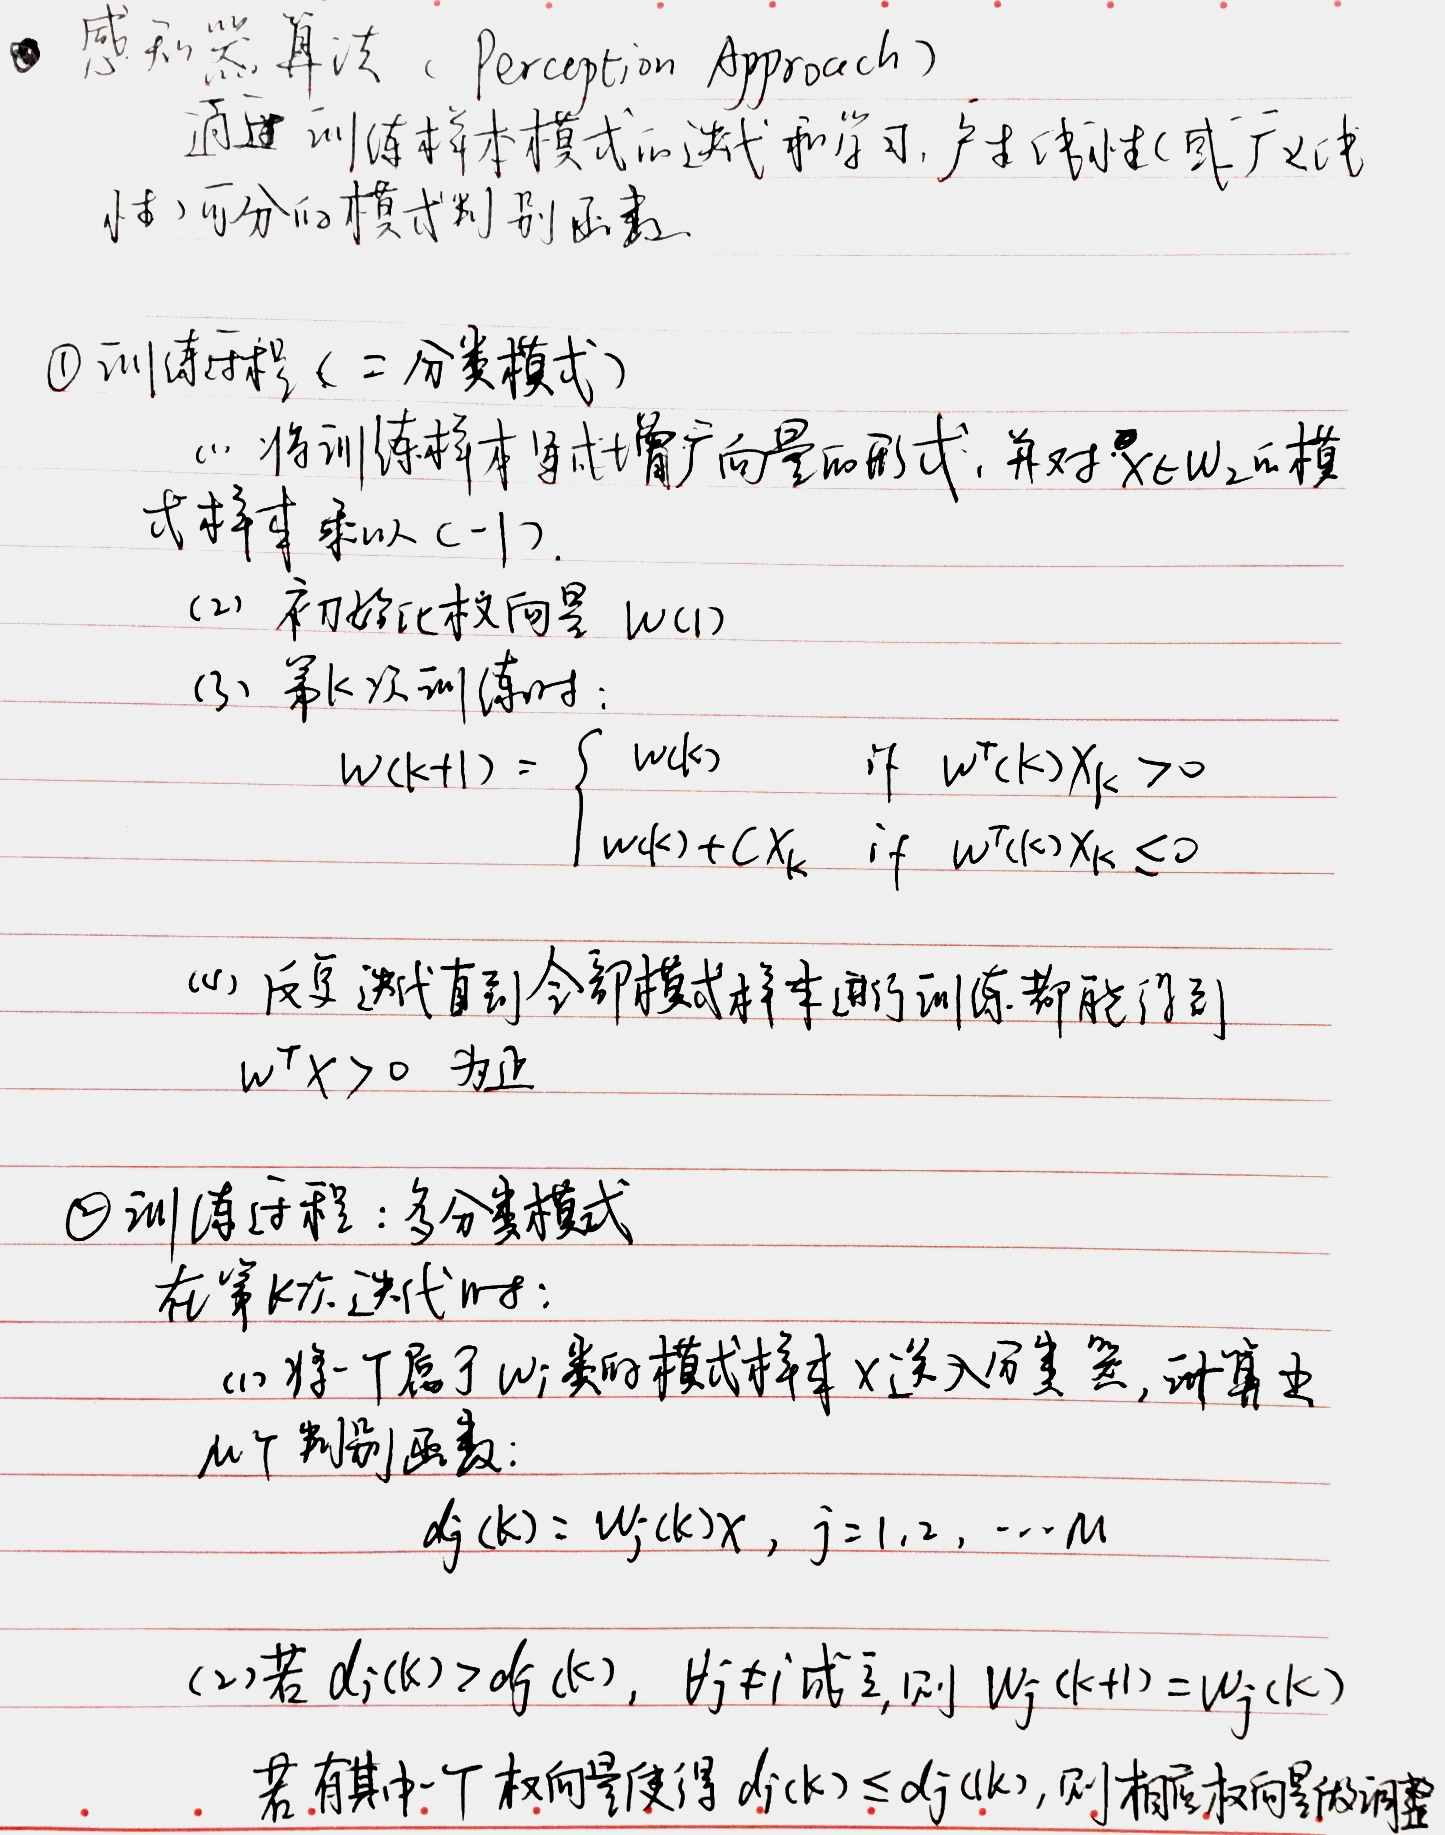 感知器算法（Perception Approach）
通过训练样本模式的迭代和学习，产生线性（或广义线
性）可分的模式判别函数.
① 训练过程（二分类模式）
(1) 将训练样本写成增广向量的形式，并对 x∈W₂的模
式样本乘以(-1).
(2) 初始化权向量 W(1)
(3) 第K次训练时：
W(k+1) = { w(k) if wᵀ(k)Xₖ >0
w(k)+CXₖ if wᵀ(k)Xₖ ≤0
(4) 反复迭代直到全部模式样本进行训练都能得到
wᵀX>0 为止
② 训练过程：多分类模式
在第K次迭代时：
(1) 将一个属于Wi类的模式样本x送入分类器，计算出
M个判别函数：
dj(k) = Wj(k)X, j=1,2, ···M
(2) 若 di(k)>dj(k), ∀j≠i成立,则 Wj(k+1)=Wj(k)
若有其中一个权向量使得 di(k)≤dj(k),则相应权向量做调整